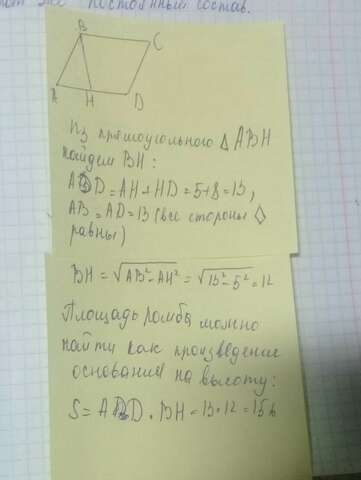 постоянный состав.
B
C
A
H
D
Из прямоугольного △ ABH
найдем BH:
AD = AH + HD = 5+8 = 13,
AB = AD = 13 (все стороны ◇
равны)
BH = √AB² - AH² = √13² - 5² = 12
Площадь ромба можно
найти как произведение
основания на высоту:
S = AD · BH = 13 · 12 = 156